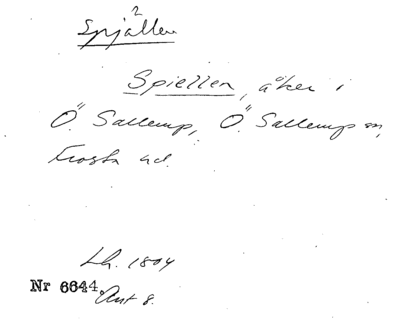 ?
Spjällen
Spiellen, åker i
Ö. Sallerup, Ö. Sallerup sn,
Frosta hd.
Lh. 1804
Nr 6644. Akt 8.